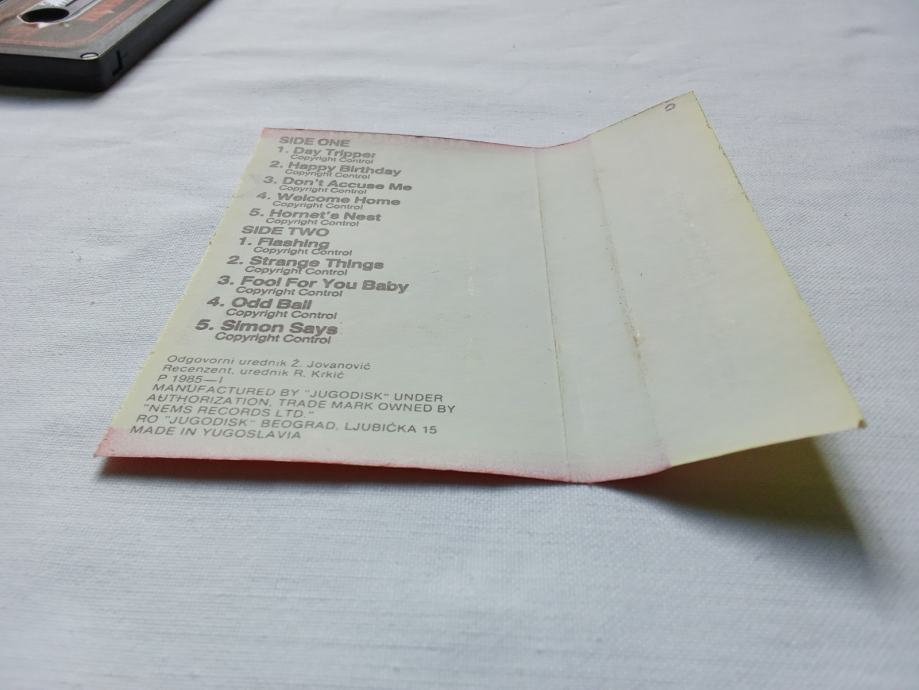 SIDE ONE
1. Day Tripper
Copyright Control
2. Happy Birthday
Copyright Control
3. Don't Accuse Me
Copyright Control
4. Welcome Home
Copyright Control
5. Hornet's Nest
Copyright Control
SIDE TWO
1. Flashing
Copyright Control
2. Strange Things
Copyright Control
3. Fool For You Baby
Copyright Control
4. Odd Ball
Copyright Control
5. Simon Says
Copyright Control
Odgovorni urednik Ž. Jovanović
Recenzent, urednik R. Krkić
P 1985—I
MANUFACTURED BY "JUGODISK" UNDER
AUTHORIZATION, TRADE MARK OWNED BY
"NEMS RECORDS LTD."
RO "JUGODISK" BEOGRAD, LJUBIĆKA 15
MADE IN YUGOSLAVIA